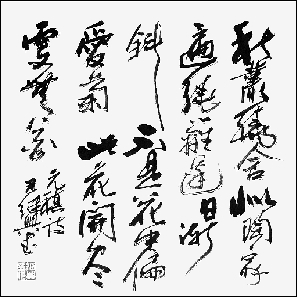 秋叢繞舍似陶家
遍繞籬邊日漸
斜不是花中偏
愛菊此花開尽
更無花
元稹诗